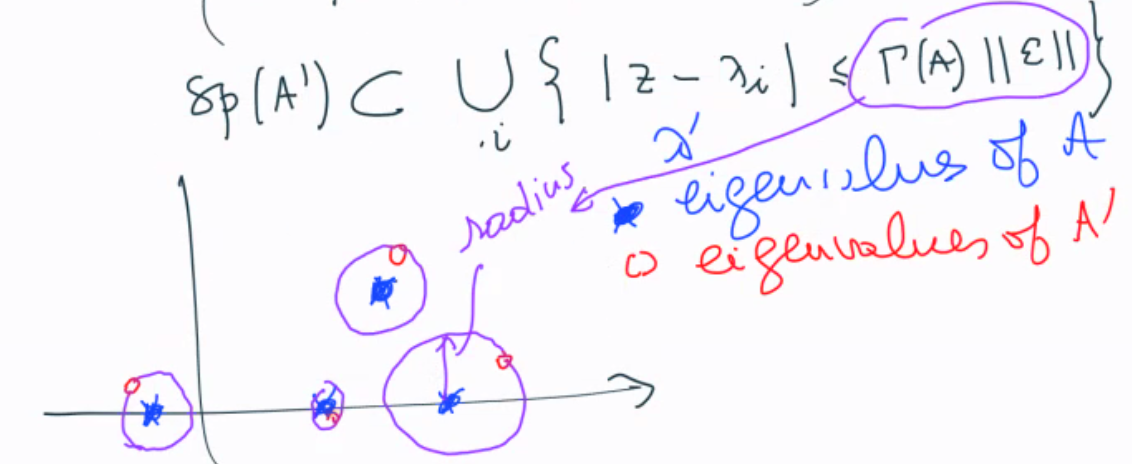 Sp(A') ⊂ ⋃ᵢ { |z - λᵢ| ≤ Γ(A) ||ε|| }
λ'
radius
eigenvalues of A
eigenvalues of A'